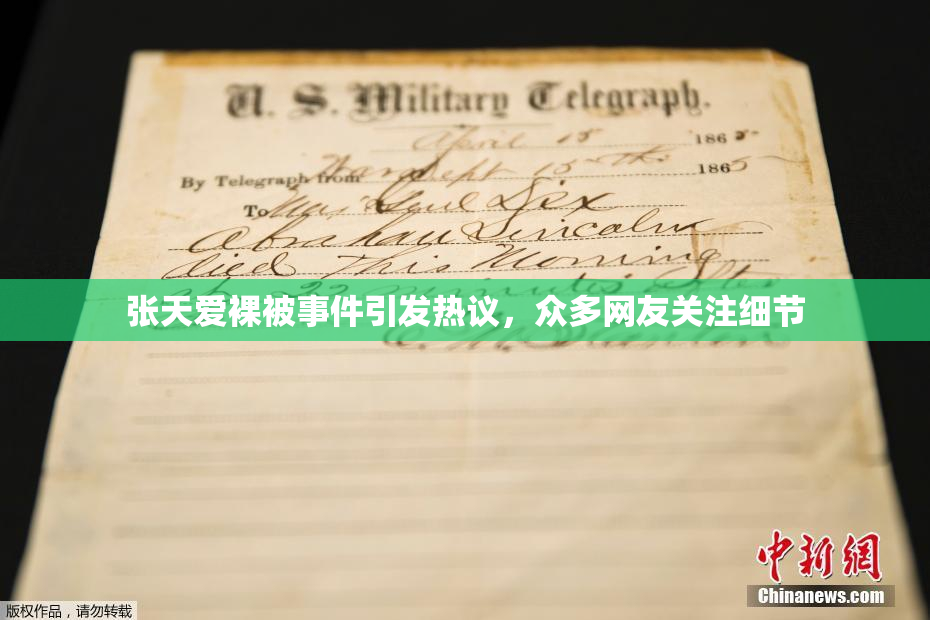 U. S. Military Telegraph.
April 15 1865
By Telegraph from War Dept 15th 1865
To Maj Genl Dix
Abraham Lincoln
died This Morning
at 22 minutes after
张天爱裸被事件引发热议，众多网友关注细节
中新网
Chinanews.com
版权作品，请勿转载